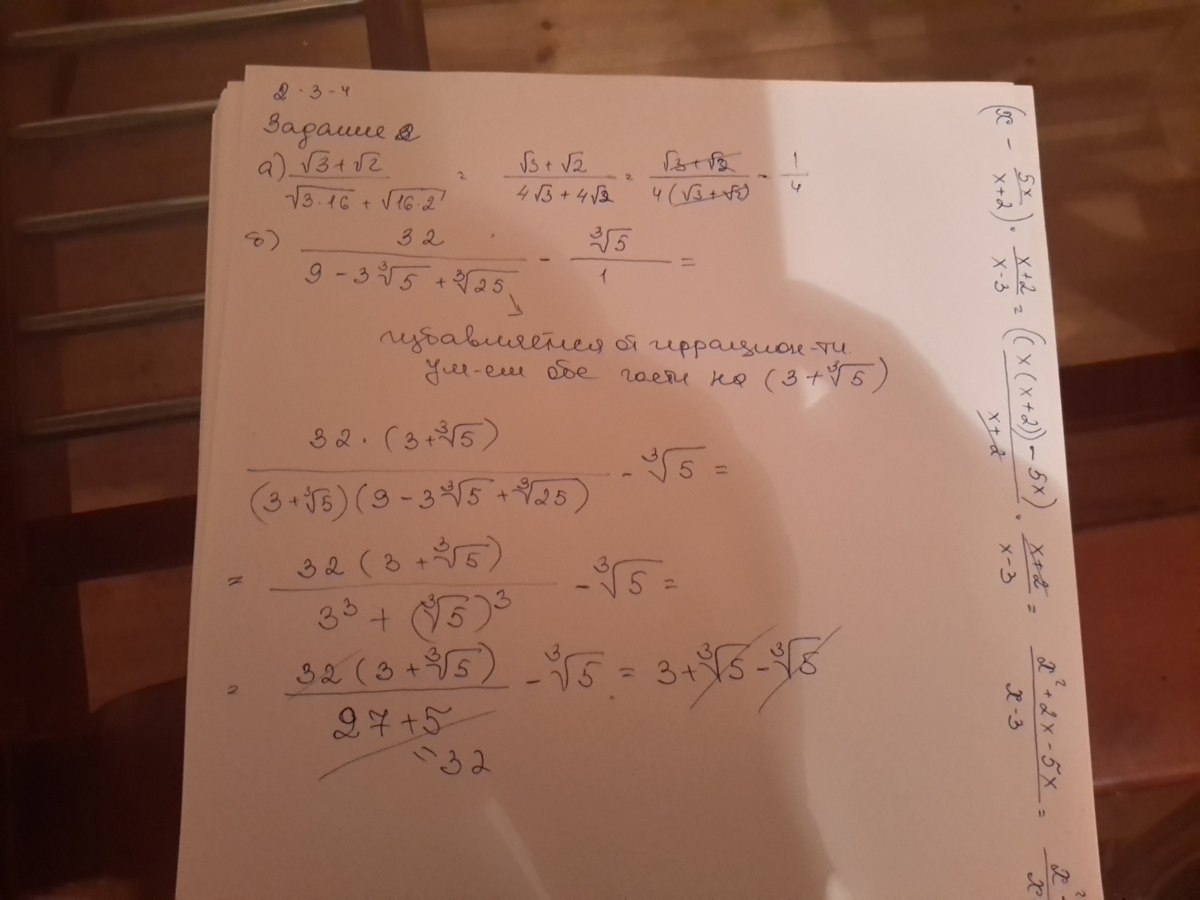 2-3-4
Задание 2
а) (√3+√2)/(√3·16 + √16·2) = (√3+√2)/(4√3+4√2) = (√3+√2)/(4(√3+√2)) - 1/4
б) 32/(9-3∛5+∛25) - ∛5/1 =
избавляемся от иррацион-ти.
Ум-ем обе части на (3+∛5)
32·(3+∛5)/((3+∛5)(9-3∛5+∛25)) - ∛5 =
= 32(3+∛5)/(3³+(∛5)³) - ∛5 =
= 32(3+∛5)/(27+5) - ∛5 = 3+∛5-∛5
=32
(x - 5x/(x+2)) · (x+2)/(x-3) = (x(x+2)) - 5x)/(x+2) · (x+2)/(x-3) = (x²+2x-5x)/(x-3) =